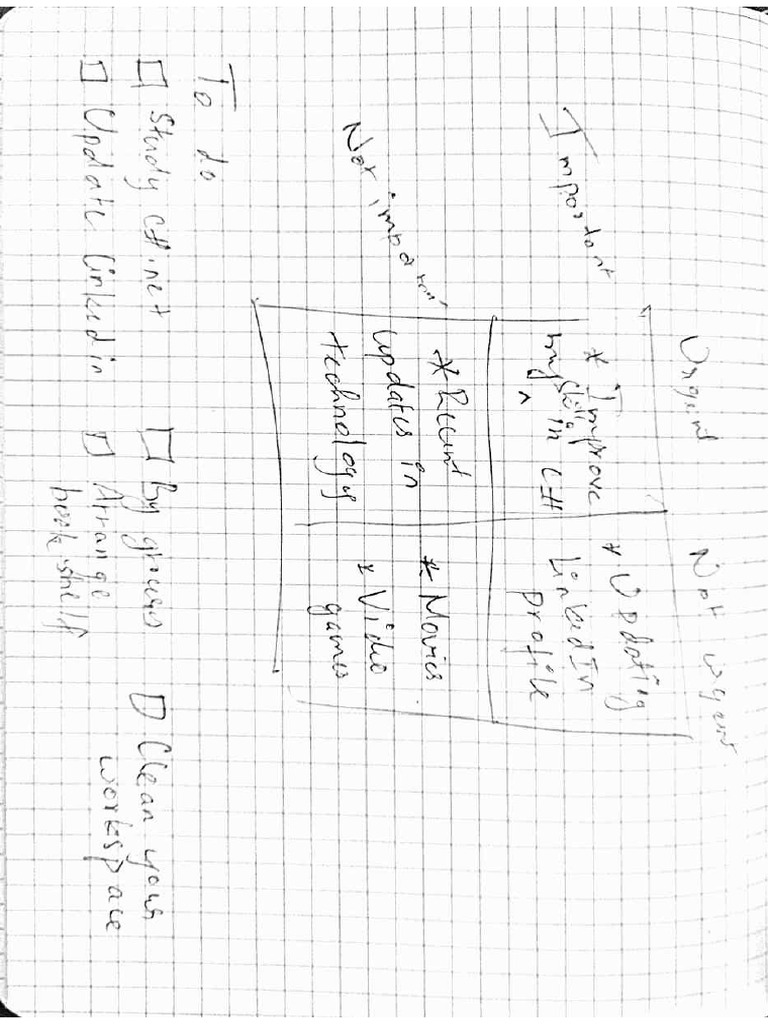 Urgent
Not urgent
Important
* Improve
my skills in C#
* Updating
LinkedIn
profile
Not important
* Recent
updates in
technology
* Movies
* Video
games
To do
Study C#.net
Update linkedin
By
Arrange
book shelf
Clean your
workspace